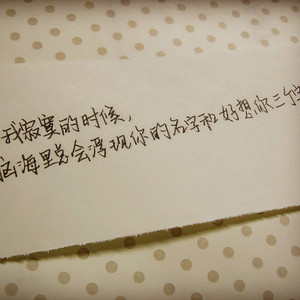 我寂寞的时候，
脑海里总会浮现你的名字和好想你三个